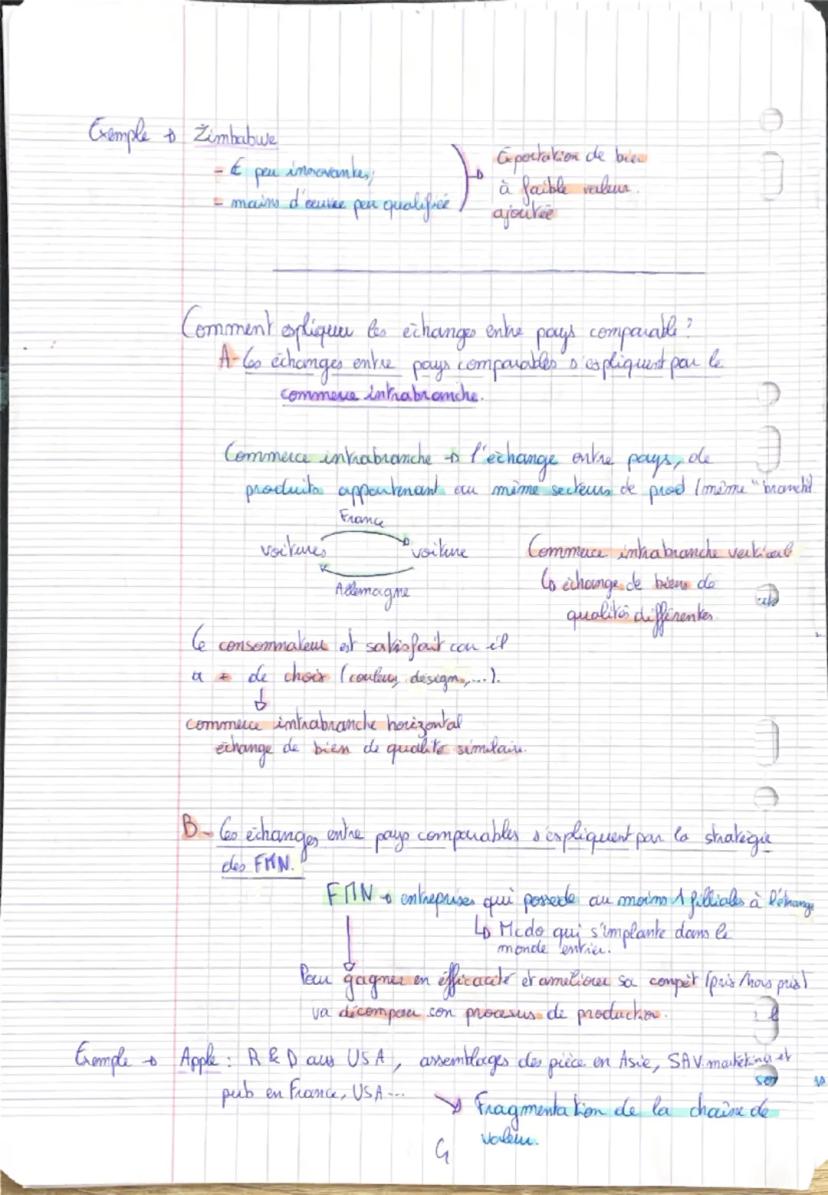 Exemple → Zimbabwe
- E peu innovantes,
- mains d'œuvre peu qualifiée
Exportation de bien
à faible valeur.
ajoutée
Comment expliquer les échanges entre pays comparable ?
A- Les échanges entre pays comparables s'expliquent par le
commerce intrabranche.
Commerce intrabranche → l'échange entre pays, de
produits appartenant au même secteurs de prod (même "branche")
France
voitures voiture
Allemagne
Commerce intrabranche vertical
↳ échange de biens de
qualités différentes
Le consommateur est satisfait car il
a + de choix (couleur, design,...).
↓
commerce intrabranche horizontal
échange de bien de qualité similaire.
B- Les échanges entre pays comparables s'expliquent par la stratégie
des FMN.
FMN → entreprises qui possede au moins 1 filliales à l'étrange
↳ Mcdo qui s'implante dans le
monde entier.
Pour gagner en éfficacité et améliorer sa compét (prix/hors prix)
va décomposer son procesus de production.
Exemple → Apple : R & D aux USA, assemblages des pièce en Asie, SAV marketing et
pub en France, USA...
↘ Fragmentation de la chaîne de
valeur.